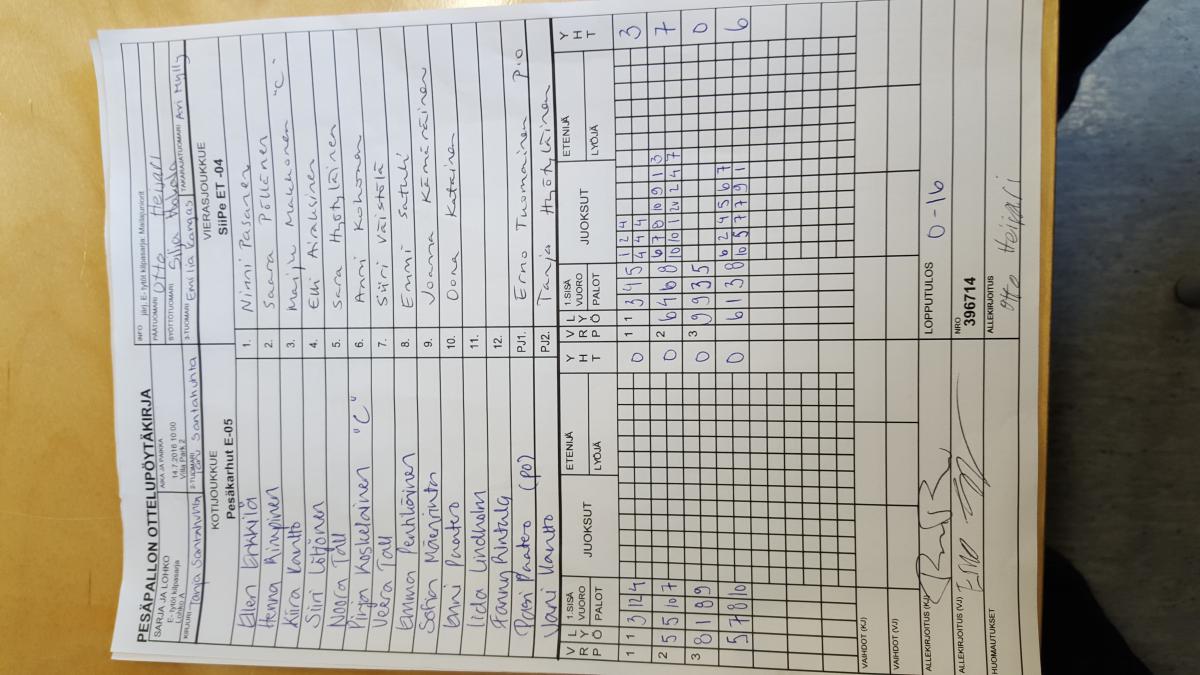 PESÄPALLON OTTELUPÖYTÄKIRJA
SARJA JA LOHKO
E- tytöt kilpasarja
Lohko A
AIKA JA PAIKKA
14.7.2016 10:00
Villa Park 2
INFO järj. E- tytöt kilpasarja: Mailajuniorit
PÄÄTUOMARI Otto Heijari
SYÖTTÖTUOMARI Silja
KIRJURI Tanja Santahuhta
2-TUOMARI Taru Santahuhta
3-TUOMARI Emilia Kangas
TAKARAJATUOMARI Ari Mylly
KOTIJOUKKUE
Pesäkarhut E-05
VIERASJOUKKUE
SiiPe ET -04
Ellen Erkkilä 1. Ninni Pasanen
Henna Rimpinen 2. Saara Pöllänen
Kiira Kantto 3. Maiju Makkonen "C"
Siiri Lötjönen 4. Elli Airaksinen
Noora Tall 5. Sara Hyötyläinen
Pirja Koskelainen "C" 6. Anni Kokonen
Veera Tall 7. Siiri Väistölä
Emma Penttikäinen 8. Emmi Satuli
Sofia Mäenpunta 9. Joanna Kämäräinen
Enni Puutero 10. Oona Katainen
Iida Lindholm 11.
Fanny Rintala 12.
Pasi Puutero (PO) PJ1. Erno Tuomainen P.O
Jani Kantto PJ2. Tanja Hyötyläinen
V R L Y P Ö 1.SISÄ VUORO PALOT JUOKSUT ETENIJÄ LYÖJÄ Y H T V R L Y P Ö 1.SISÄ VUORO PALOT JUOKSUT ETENIJÄ LYÖJÄ Y H T
1 1 3 12 4 0 1 1 3 4 5 1 2 4 3
4 4 4
2 5 5 10 7 0 2 6 4 6 8 6 7 8 10 9 1 3 7
10 10 1 2 2 4 7
3 8 1 8 9 0 3 9 9 3 5 0
5 7 8 10 0 6 1 3 8 6 2 4 5 6 7 6
10 5 7 7 9 1
VAIHDOT (KJ)
VAIHDOT (VJ)
ALLEKIRJOITUS (KJ)
LOPPUTULOS 0-16
ALLEKIRJOITUS (VJ)
NRO
396714
HUOMAUTUKSET
ALLEKIRJOITUS
Otto Heijari